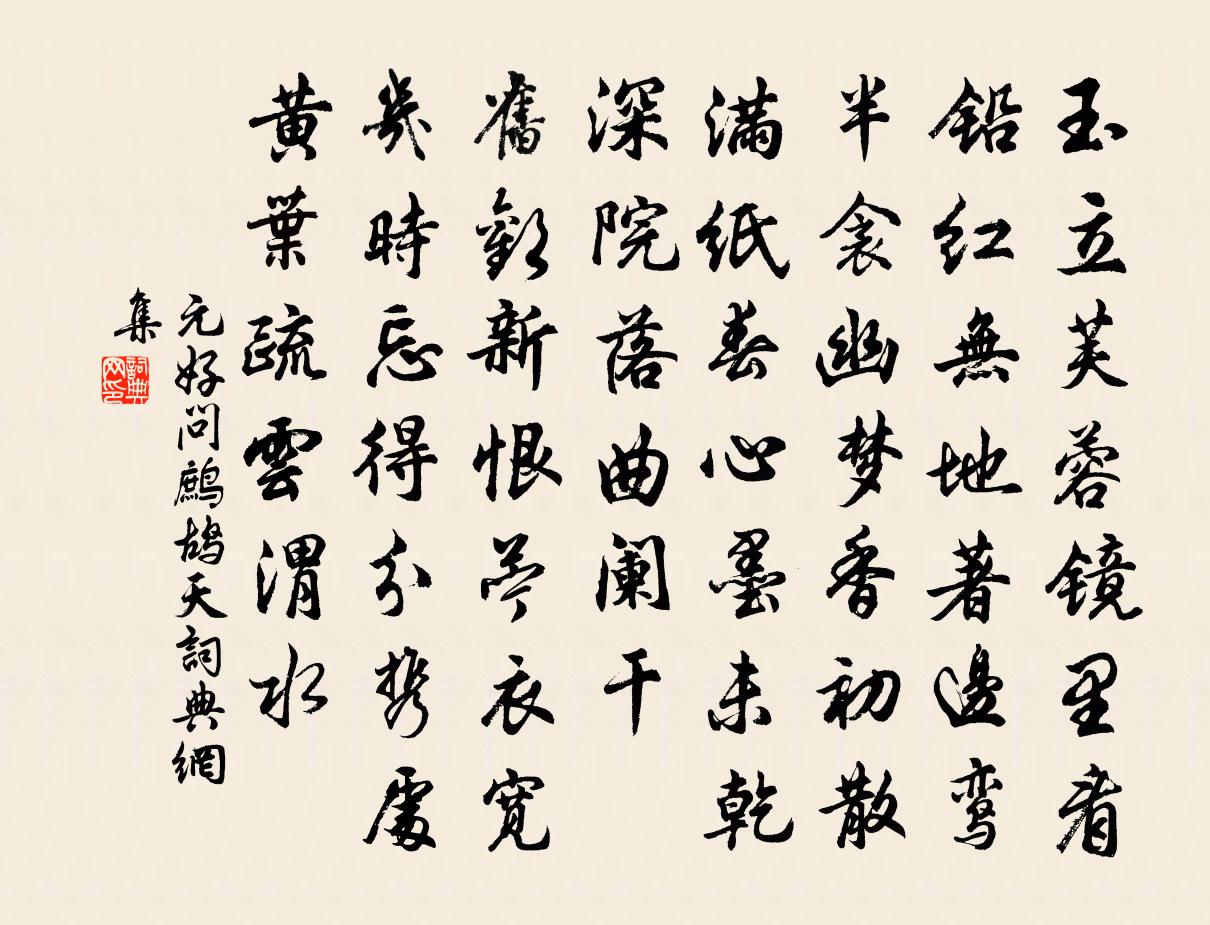 玉立芙蓉镜里看
铅红無地著邊鸾
半衾幽梦香初散
满纸春心墨未乾
深院落曲阑干
舊歡新恨苎衣寬
幾時忘得分携處
黄葉疏雲渭水
元好问鷓鴣天詞典網
集
詞典网印